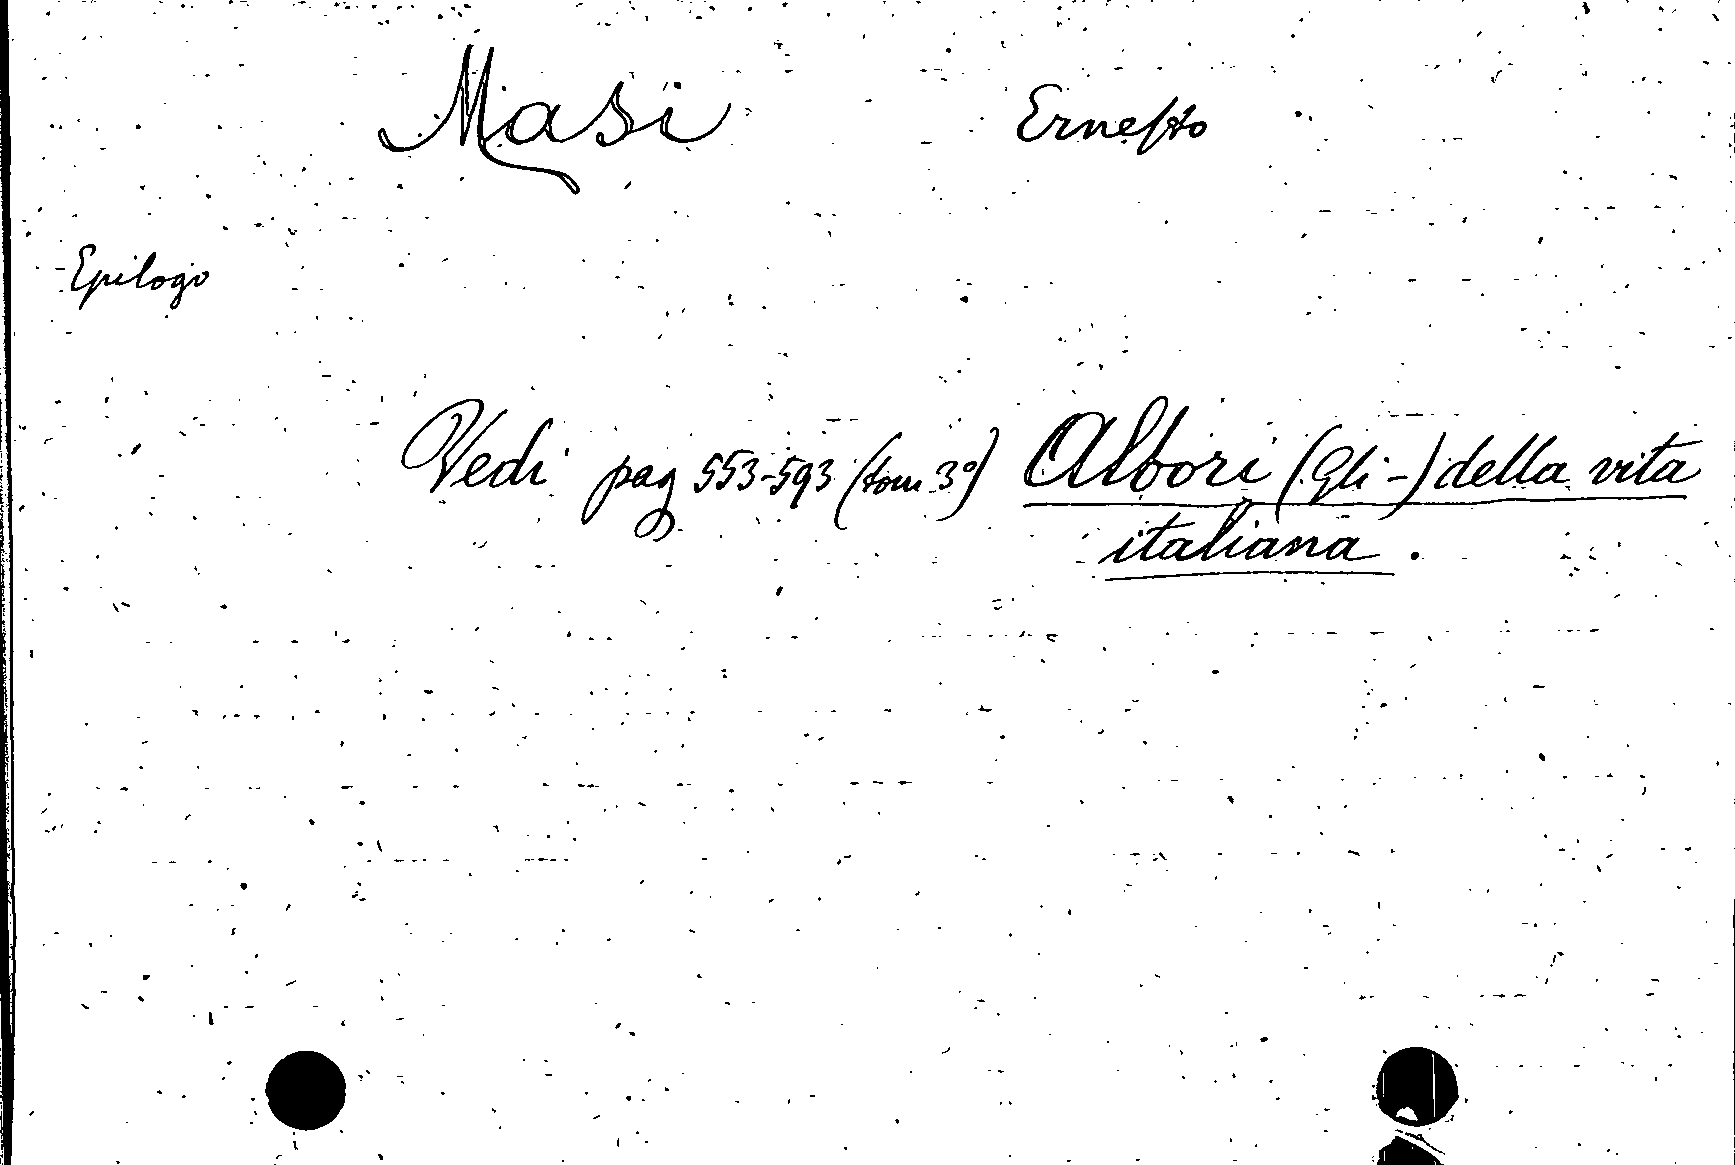 Masi Ernesto
Epilogo
Vedi pag 553-593 (tom 3º) Albori (Gli-) della vita
italiana.